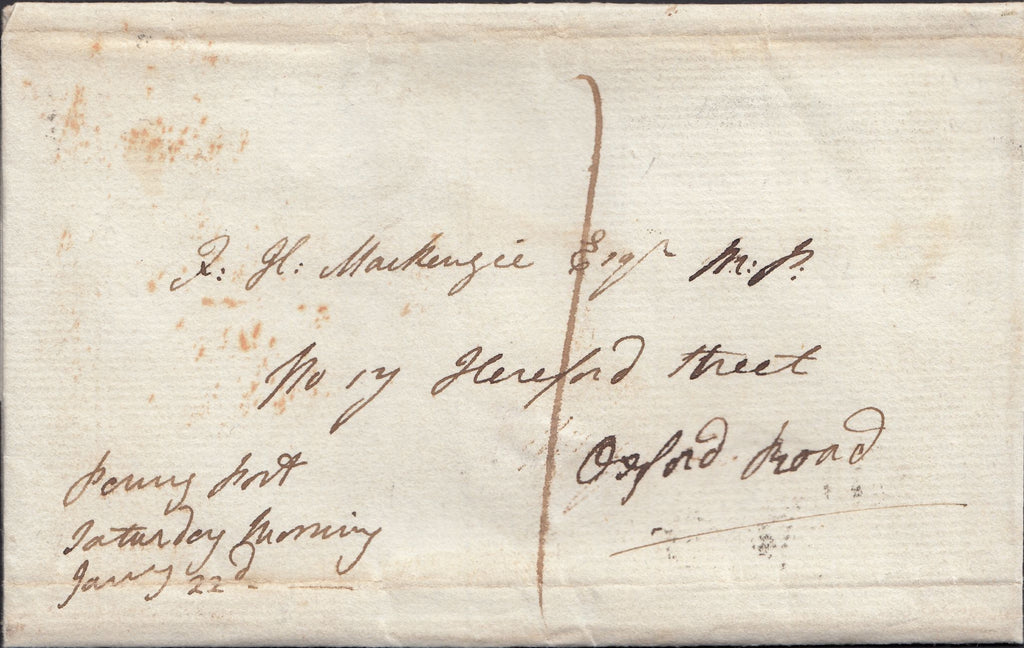 F: H: Mackenzie Esqr M: P.
No 17 Hereford Street
Oxford Road
Penny Post
Saturday Morning
Janry 22d